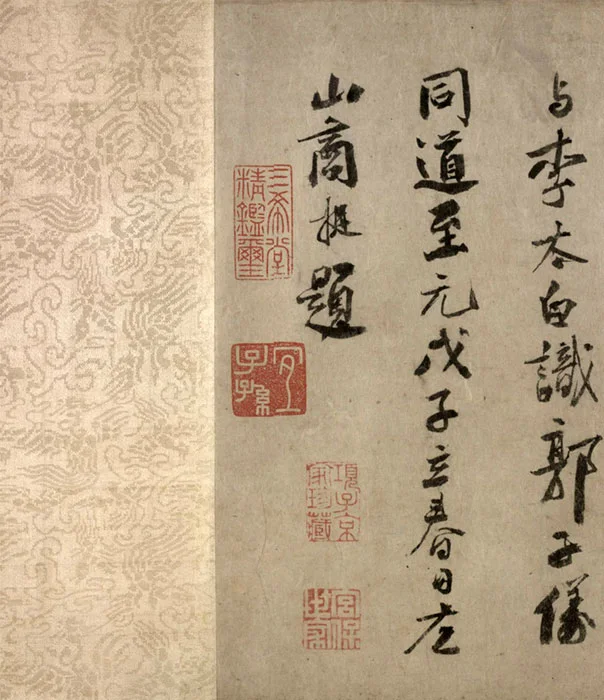 与李太白識郭子儀
同道至元戊子立春日左
山商挺題
三希堂
精鑑璽
宜
子孫
項子京
家珍藏
宮保
世家